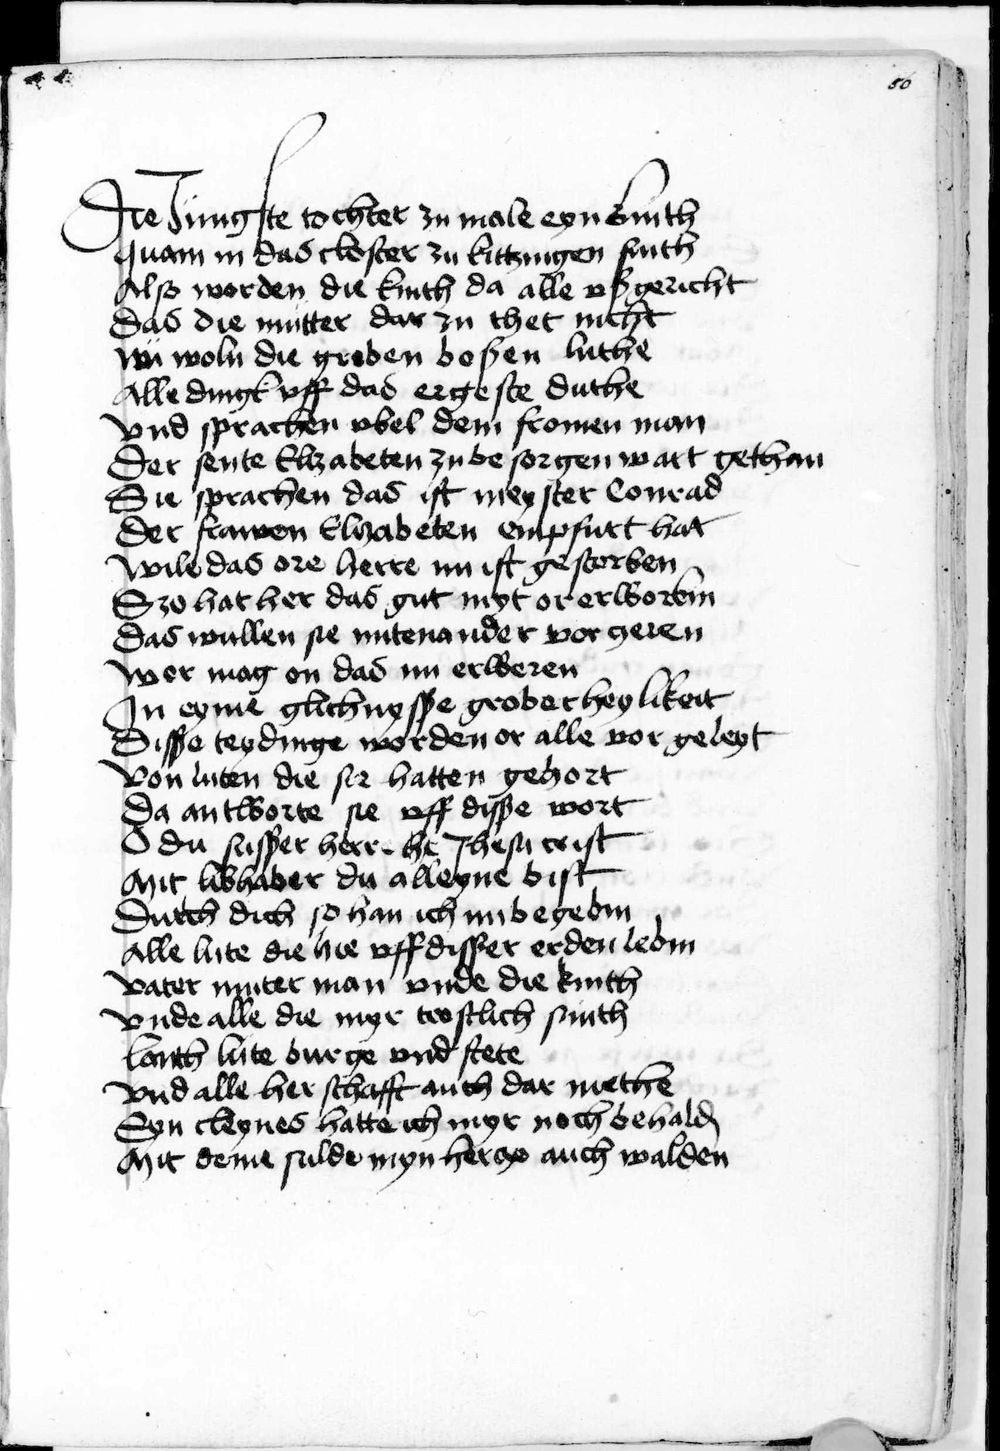 56
Die Jungste tochter zu male eyn kinth
Quam in das closter zu kittzingen sinth
Also worden die kinth da alle vßgericht
Das die mutter dar zu thet nicht
Wü woln die groben boßen luthe
Alle dingk vff das ergeste duthe
Vnd sprachen vbel dem fromen man
Der sente Elizabeten zu be sorgen wart gethan
Sie sprachen das ist meyster Conrad
Der frawen Elizabeten empfurt hat
Wile das ore herre nu ist gestorben
Szo hat her das gut myt or erworbin
Das wullen sie mitenander vor zeren
Wer mag on das nu erweren
In eyme glichnysse grober heylikeit
Disse teydinge worden or alle vor geleyt
Von luten die sie hatten gehort
Da antworte sie vff disse wort
O du susser herre Jhesu crist
Mit libhaber du alleyne bist
Durch dich so han ich nu begebin
Alle lute die hie vff disser erden lebin
Vater muter man vnde die kinth
Vnde alle die myr trostlich sinth
Lanth lute burge vnd stete
Vnd alle herschafft auch dar methe
Eyn cleynes hatte ich myr noch behald
Mit deme sulde myn hercze auch walden